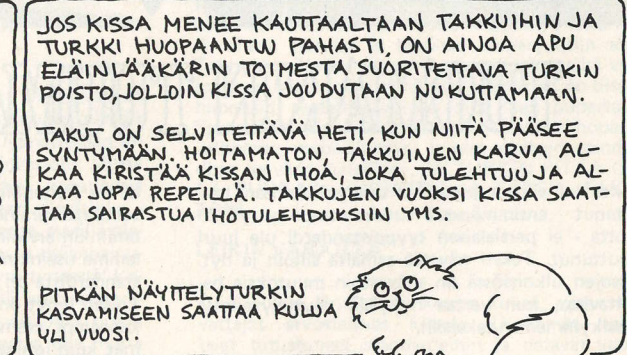 JOS KISSA MENEE KAUTTAALTAAN TAKKUIHIN JA
TURKKI HUOPAANTUU PAHASTI, ON AINOA APU
ELÄINLÄÄKÄRIN TOIMESTA SUORITETTAVA TURKIN
POISTO, JOLLOIN KISSA JOUDUTAAN NUKUTTAMAAN.
TAKUT ON SELVITETTÄVÄ HETI, KUN NIITÄ PÄÄSEE
SYNTYMÄÄN. HOITAMATON, TAKKUINEN KARVA AL-
KAA KIRISTÄÄ KISSAN IHOA, JOKA TULEHTUU JA AL-
KAA JOPA REPEILLÄ. TAKKUJEN VUOKSI KISSA SAAT-
TAA SAIRASTUA IHOTULEHDUKSIIN YMS.
PITKÄN NÄYTTELYTURKIN
KASVAMISEEN SAATTAA KULUA
YLI VUOSI.